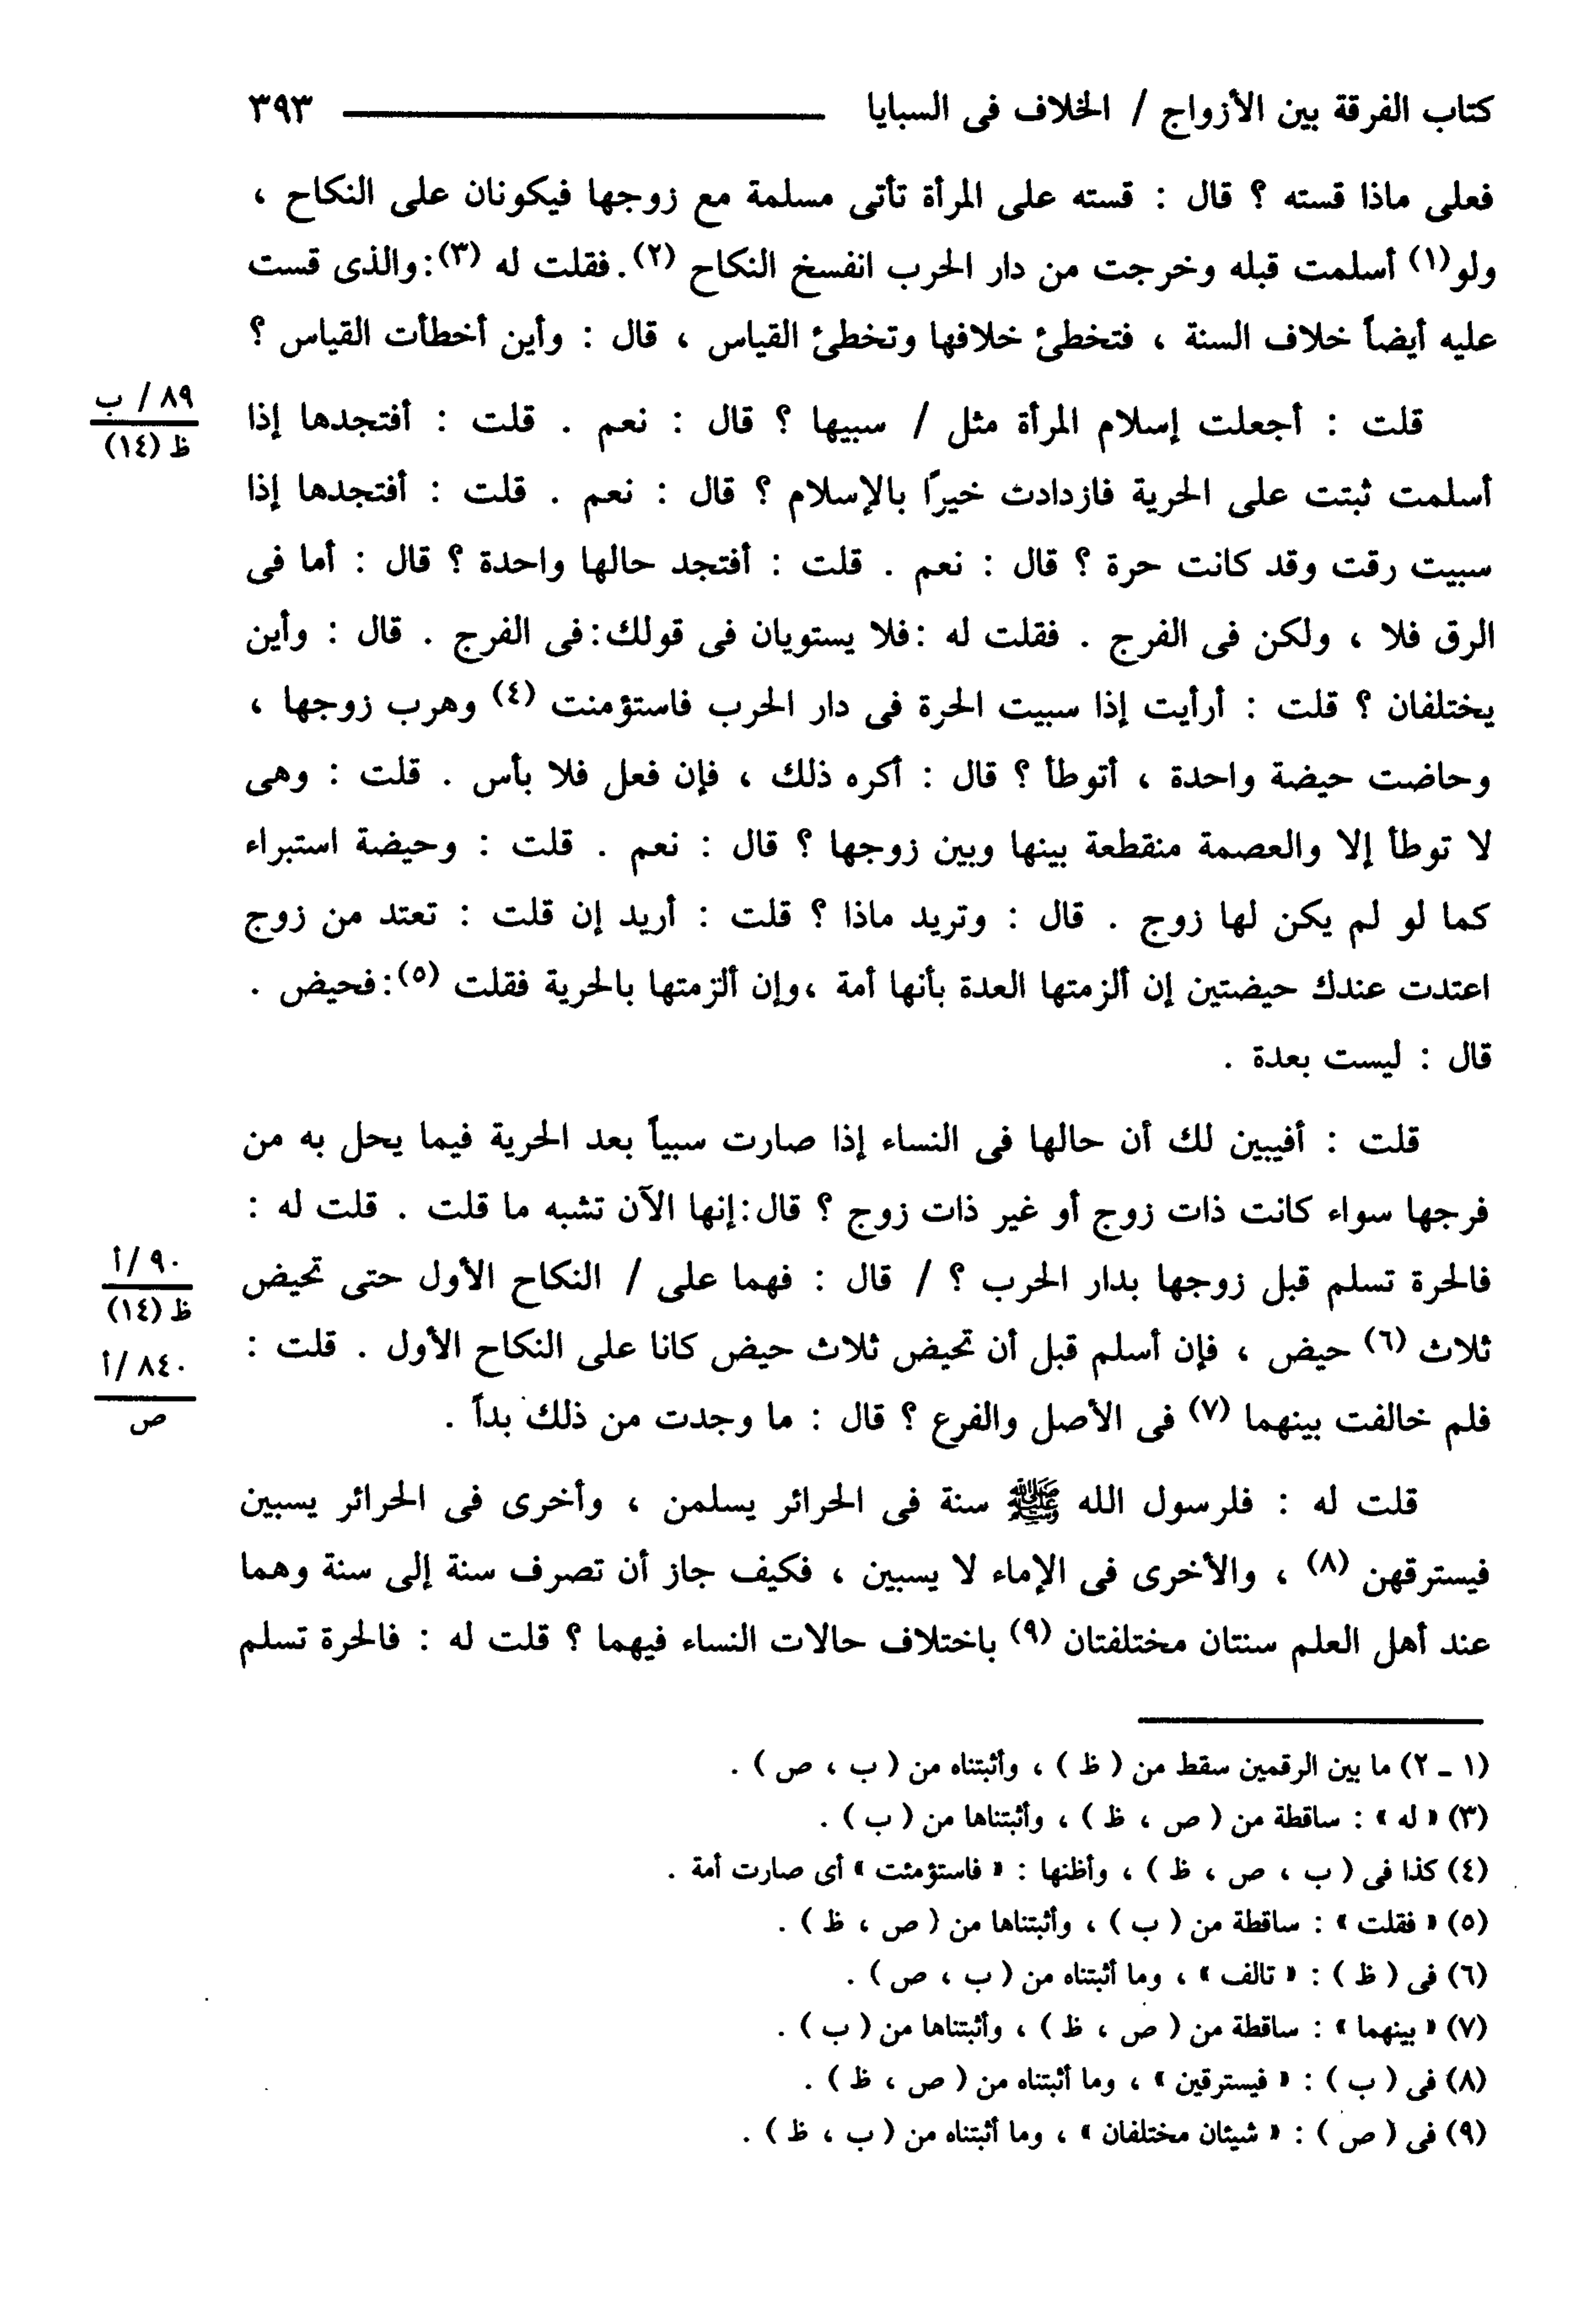 كتاب الفرقة بين الأزواج / الخلاف فى السبايا ٣٩٣
فعلى ماذا قسته ؟ قال : قسته على المرأة تأتى مسلمة مع زوجها فيكونان على النكاح ،
ولو(١) أسلمت قبله وخرجت من دار الحرب انفسخ النكاح (٢).فقلت له (٣):والذى قست
عليه أيضاً خلاف السنة ، فتخطئ خلافها وتخطئ القياس ، قال : وأين أخطأت القياس ؟
قلت : أجعلت إسلام المرأة مثل / سبيها ؟ قال : نعم . قلت : أفتجدها إذا
٨٩ / ب
ظ (١٤)
أسلمت ثبتت على الحرية فازدادت خيراً بالإسلام ؟ قال : نعم . قلت : أفتجدها إذا
سبيت رقت وقد كانت حرة ؟ قال : نعم . قلت : أفتجد حالها واحدة ؟ قال : أما فى
الرق فلا ، ولكن فى الفرج . فقلت له :فلا يستويان فى قولك:فى الفرج . قال : وأين
يختلفان ؟ قلت : أرأيت إذا سبيت الحرة فى دار الحرب فاستؤمنت (٤) وهرب زوجها ،
وحاضت حيضة واحدة ، أتوطأ ؟ قال : أكره ذلك ، فإن فعل فلا بأس . قلت : وهى
لا توطأ إلا والعصمة منقطعة بينها وبين زوجها ؟ قال : نعم . قلت : وحيضة استبراء
كما لو لم يكن لها زوج . قال : وتريد ماذا ؟ قلت : أريد إن قلت : تعتد من زوج
اعتدت عندك حيضتين إن ألزمتها العدة بأنها أمة ،وإن ألزمتها بالحرية فقلت (٥):فحيض .
قال : ليست بعدة .
قلت : أفيبين لك أن حالها فى النساء إذا صارت سبياً بعد الحرية فيما يحل به من
فرجها سواء كانت ذات زوج أو غير ذات زوج ؟ قال:إنها الآن تشبه ما قلت . قلت له :
فالحرة تسلم قبل زوجها بدار الحرب ؟ / قال : فهما على / النكاح الأول حتى تحيض
٩٠ /أ
ظ (١٤)
ثلاث (٦) حيض ، فإن أسلم قبل أن تحيض ثلاث حيض كانا على النكاح الأول . قلت :
٨٤٠ /أ
ص
فلم خالفت بينهما (٧) فى الأصل والفرع ؟ قال : ما وجدت من ذلك بداً .
قلت له : فلرسول الله ﷺ سنة فى الحرائر يسلمن ، وأخرى فى الحرائر يسبين
فيسترقهن (٨) ، والأخرى فى الإماء لا يسبين ، فكيف جاز أن تصرف سنة إلى سنة وهما
عند أهل العلم سنتان مختلفتان (٩) باختلاف حالات النساء فيهما ؟ قلت له : فالحرة تسلم
(١ ـ ٢) ما بين الرقمين سقط من ( ظ ) ، وأثبتناه من ( ب ، ص ) .
(٣) « له » : ساقطة من ( ص ، ظ ) ، وأثبتناها من ( ب ) .
(٤) كذا فى ( ب ، ص ، ظ ) ، وأظنها : « فاستؤمئت » أى صارت أمة .
(٥) « فقلت » : ساقطة من ( ب ) ، وأثبتناها من ( ص ، ظ ) .
(٦) فى ( ظ ) : « تالف » ، وما أثبتناه من ( ب ، ص ) .
(٧) « بينهما » : ساقطة من ( ص ، ظ ) ، وأثبتناها من ( ب ) .
(٨) فى ( ب ) : « فيسترقين » ، وما أثبتناه من ( ص ، ظ ) .
(٩) فى ( ص ) : « شيئان مختلفان » ، وما أثبتناه من ( ب ، ظ ) .